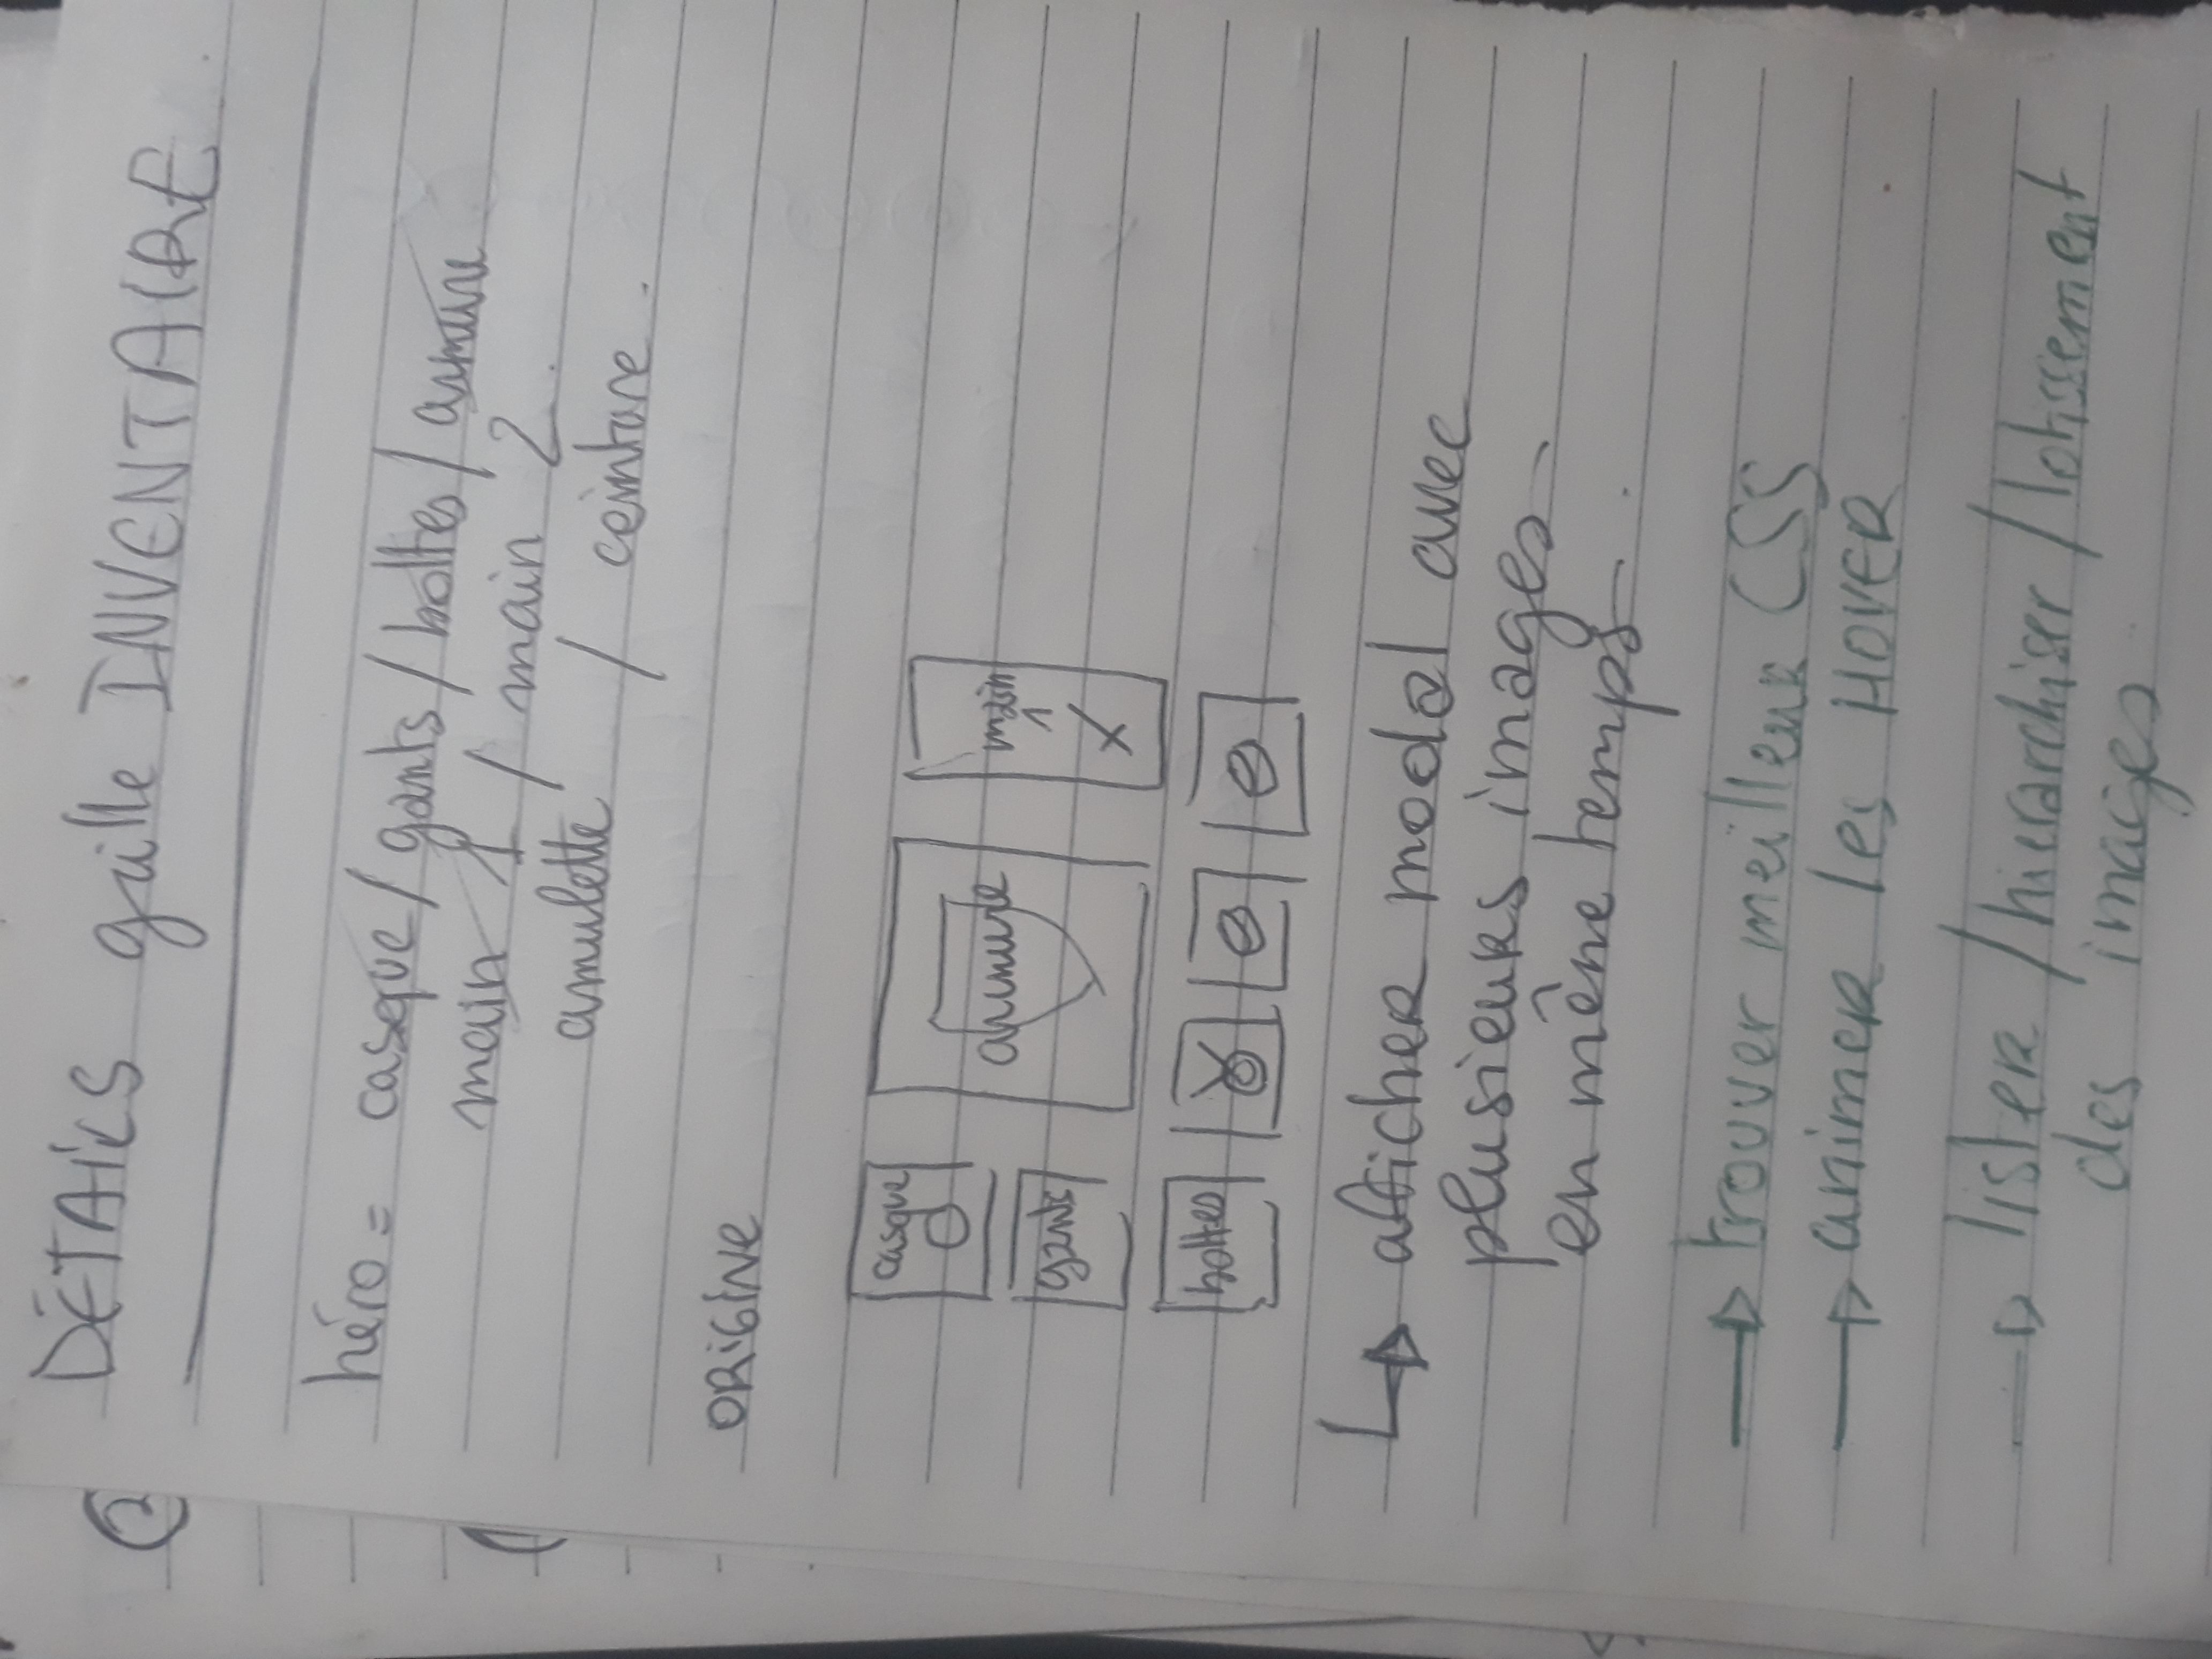 DÉTAILS grille INVENTAIRE
2
héro = casque / gants / bottes / armure
main 1 / main 2.
amulette / ceinture.
ORIGINE
casque
armure
main
1
gants
bottes
afficher modal avec
plusieurs images
en même temps.
trouver meilleur CSS
animer les HOVER
lister / hierarchiser / lotissement
des images